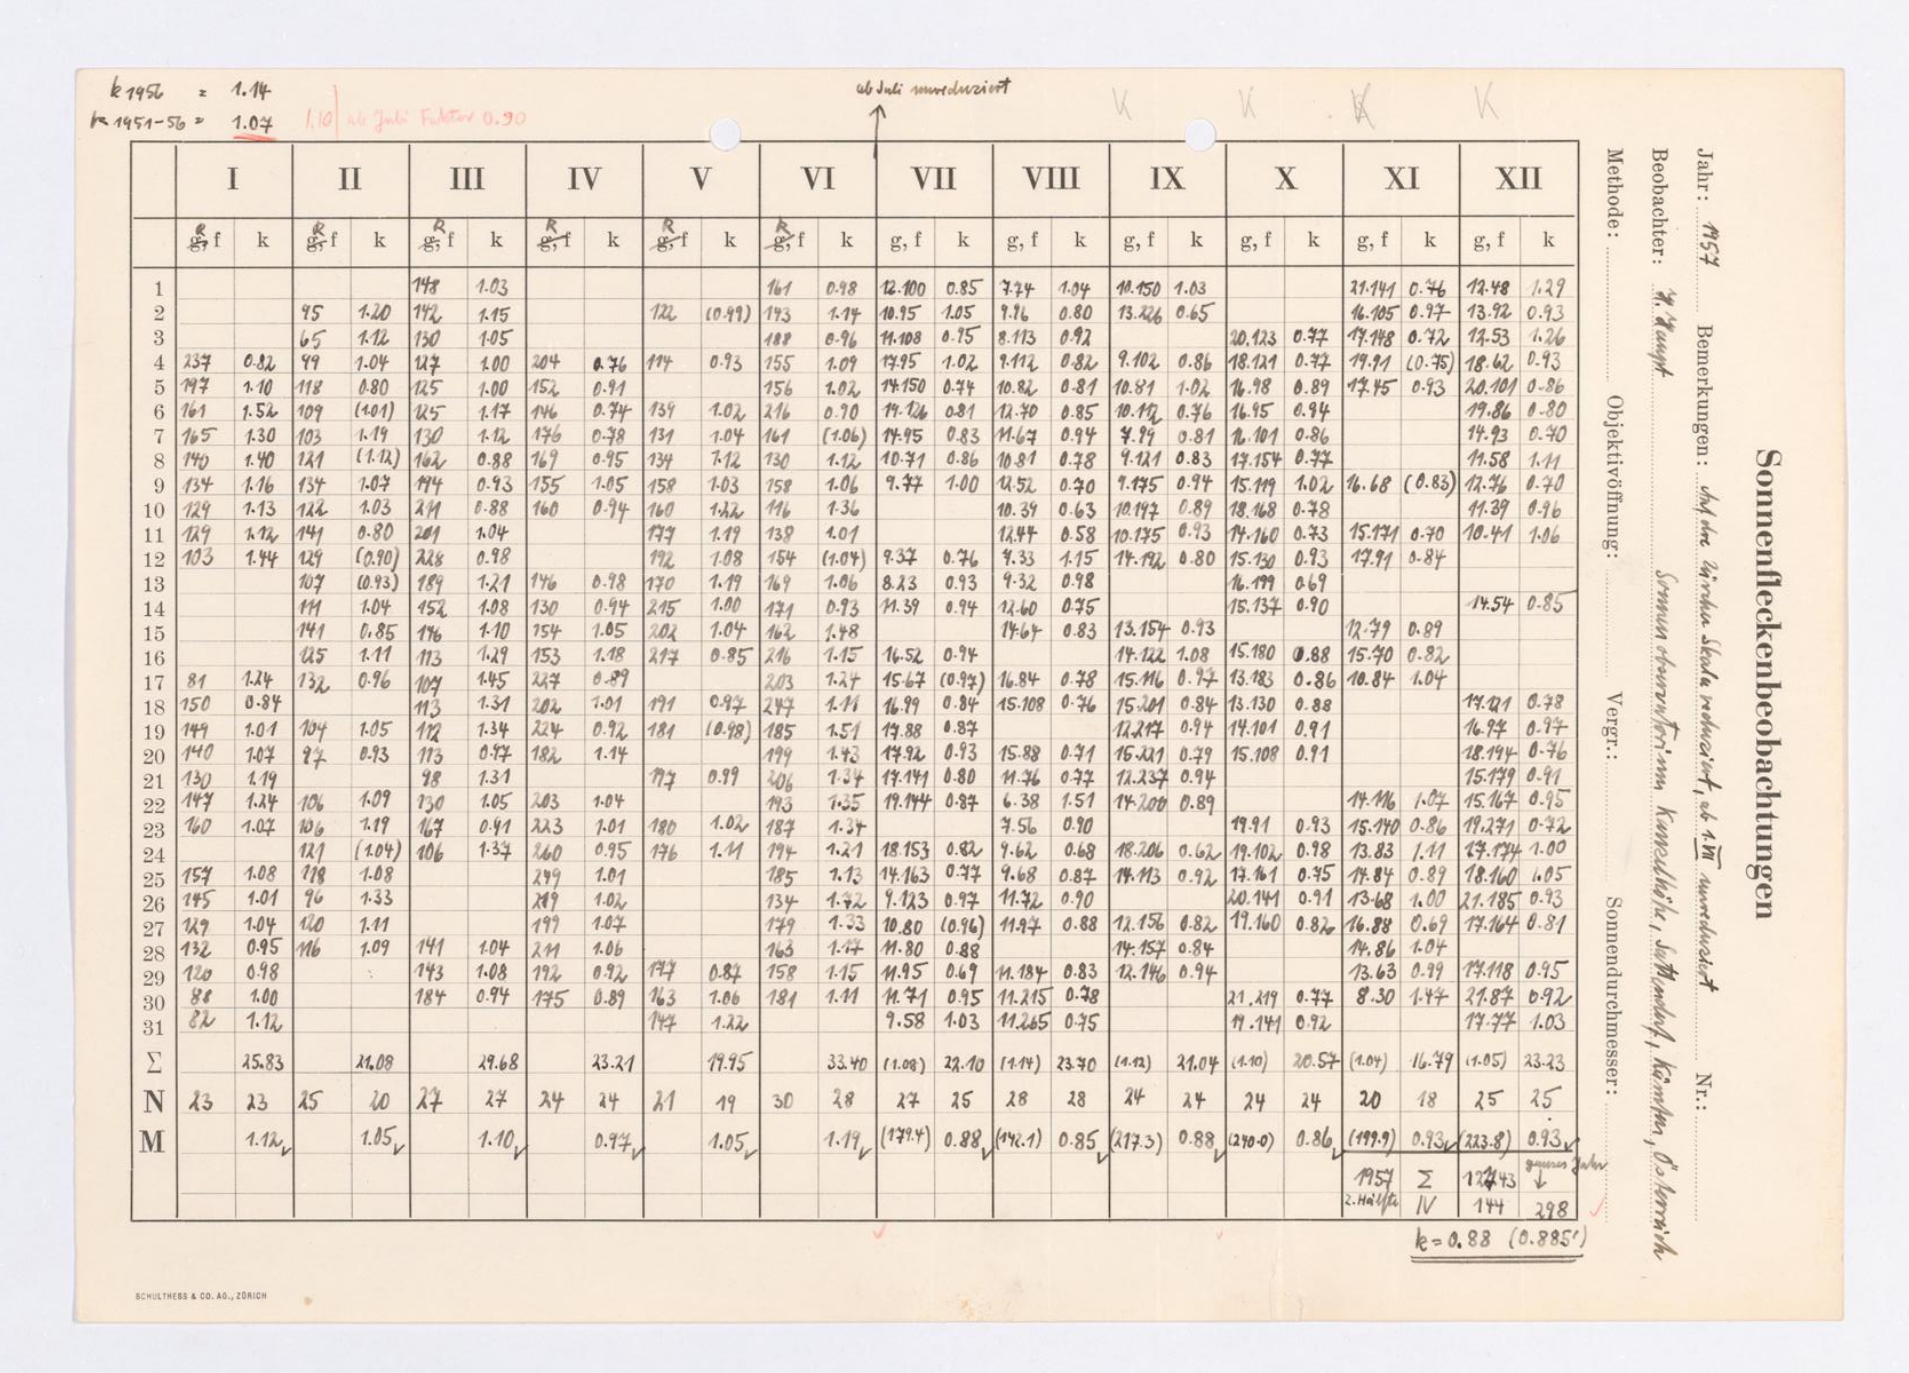 k 1956 = 1.14
k 1951-56 = 1.07 1.10 ab Juli Faktor 0.90
ab Juli unreduziert
K K K K
I II III IV V VI VII VIII IX X XI XII
R g, f k R g, f k R g, f k R g, f k R g, f k R g, f k g, f k g, f k g, f k g, f k g, f k g, f k
1 148 1.03 161 0.98 12.100 0.85 7.74 1.04 10.150 1.03 21.141 0.76 12.48 1.29
2 95 1.20 142 1.15 122 (0.99) 193 1.14 10.95 1.05 9.96 0.80 13.226 0.65 16.105 0.97 13.92 0.93
3 65 1.12 130 1.05 188 0.96 11.108 0.95 8.113 0.92 20.123 0.77 17.148 0.72 12.53 1.26
4 237 0.82 99 1.04 127 1.00 204 0.76 114 0.93 155 1.09 17.95 1.02 9.112 0.82 9.102 0.86 18.121 0.77 19.91 (0.75) 18.62 0.93
5 197 1.10 118 0.80 125 1.00 152 0.91 156 1.02 14.150 0.74 10.82 0.81 10.81 1.02 16.98 0.89 17.45 0.93 20.101 0.86
6 161 1.52 109 (1.01) 125 1.17 146 0.74 139 1.02 216 0.90 19.126 0.81 12.70 0.85 10.112 0.76 16.95 0.94 19.86 0.80
7 165 1.30 103 1.19 130 1.12 176 0.78 131 1.04 161 (1.06) 14.95 0.83 11.67 0.94 7.99 0.81 16.101 0.86 14.93 0.70
8 140 1.40 121 (1.12) 162 0.88 169 0.95 134 1.12 130 1.12 10.71 0.86 10.81 0.78 9.121 0.83 17.154 0.77 11.58 1.11
9 134 1.16 134 1.07 194 0.93 155 1.05 158 1.03 158 1.06 9.77 1.00 12.52 0.70 9.175 0.94 15.119 1.02 16.68 (0.83) 12.76 0.70
10 129 1.13 122 1.03 211 0.88 160 0.94 160 1.22 116 1.36 10.39 0.63 10.197 0.89 18.168 0.78 11.39 0.96
11 129 1.12 141 0.80 201 1.04 177 1.19 138 1.01 12.44 0.58 10.175 0.93 14.160 0.73 15.171 0.70 10.41 1.06
12 103 1.44 129 (0.90) 228 0.98 192 1.08 154 (1.04) 9.37 0.76 9.33 1.15 14.192 0.80 15.130 0.93 17.91 0.84
13 107 (0.93) 189 1.21 146 0.98 170 1.19 169 1.06 8.23 0.93 9.32 0.98 16.199 0.69
14 111 1.04 152 1.08 130 0.94 215 1.00 171 0.93 11.39 0.94 12.60 0.75 15.137 0.90 14.54 0.85
15 141 0.85 146 1.10 154 1.05 202 1.04 162 1.48 14.64 0.83 13.154 0.93 12.79 0.89
16 125 1.11 113 1.29 153 1.18 217 0.85 216 1.15 16.52 0.94 14.122 1.08 15.180 0.88 15.70 0.82
17 81 1.24 132 0.96 107 1.45 227 0.89 203 1.24 15.67 (0.97) 16.84 0.78 15.116 0.97 13.183 0.86 10.84 1.04
18 150 0.84 113 1.31 202 1.01 191 0.97 247 1.11 16.99 0.84 15.108 0.76 15.201 0.84 13.130 0.88 17.121 0.78
19 149 1.01 104 1.05 112 1.34 224 0.92 181 (0.98) 185 1.51 17.88 0.87 12.217 0.94 14.101 0.91 16.97 0.97
20 140 1.07 97 0.93 113 0.97 182 1.14 199 1.43 17.92 0.93 15.88 0.71 15.221 0.79 15.108 0.91 18.194 0.76
21 130 1.19 98 1.31 197 0.99 206 1.34 17.141 0.80 11.76 0.77 12.237 0.94 15.179 0.91
22 147 1.24 106 1.09 130 1.05 203 1.04 193 1.35 19.144 0.87 6.38 1.51 14.200 0.89 14.116 1.07 15.167 0.95
23 160 1.07 106 1.19 167 0.91 223 1.01 180 1.02 187 1.34 7.56 0.90 19.91 0.93 15.140 0.86 19.271 0.72
24 121 (1.04) 106 1.37 260 0.95 176 1.11 194 1.21 18.153 0.82 9.62 0.68 18.206 0.62 19.102 0.98 13.83 1.11 17.174 1.00
25 157 1.08 118 1.08 249 1.01 185 1.13 14.163 0.77 9.68 0.87 14.113 0.92 17.161 0.75 14.84 0.89 18.160 1.05
26 145 1.01 96 1.33 219 1.02 134 1.72 9.123 0.97 11.72 0.90 20.141 0.91 13.68 1.00 21.185 0.93
27 129 1.04 120 1.11 199 1.07 179 1.33 10.80 (0.96) 11.97 0.88 12.156 0.82 19.160 0.82 16.88 0.69 17.164 0.81
28 132 0.95 116 1.09 141 1.04 211 1.06 163 1.17 11.80 0.88 14.157 0.84 14.86 1.04
29 120 0.98 143 1.08 192 0.92 177 0.87 158 1.15 11.95 0.69 11.184 0.83 12.146 0.94 13.63 0.99 17.118 0.95
30 88 1.00 184 0.94 175 0.89 163 1.06 181 1.11 11.71 0.95 11.215 0.78 21.219 0.77 8.30 1.47 21.87 0.92
31 82 1.12 147 1.22 9.58 1.03 11.265 0.75 19.141 0.92 17.77 1.03
Σ 25.83 21.08 29.68 23.21 19.95 33.40 (1.08) 22.10 (1.14) 23.70 (1.12) 21.04 (1.10) 20.57 (1.04) 16.79 (1.05) 23.23
N 23 23 25 20 27 27 24 24 21 19 30 28 27 25 28 28 24 24 24 24 20 18 25 25
M 1.12 1.05 1.10 0.97 1.05 1.19 (179.4) 0.88 (142.1) 0.85 (217.3) 0.88 (240.0) 0.86 (199.9) 0.93 (223.8) 0.93
1957 Σ 127.43 ganzes Jahr
2. Hälfte N 144 298
k = 0.88 (0.885')
SCHULTHESS & CO. AG., ZÜRICH
Sonnenfleckenbeobachtungen
Jahr: 1957 Bemerkungen: Auf die Zürcher Skala reduziert, ab 1. VII unreduziert Nr.:
Beobachter: H. Haupt Sonnenobservatorium Kanzelhöhe, Sattendorf, Kärnten, Österreich
Methode: Objektivöffnung: Vergr.: Sonnendurchmesser: